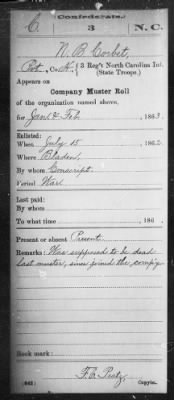 Confederate
C. 3 N.C.
N. B. Corbet,
Pvt, Co. K, 3 Reg't North Carolina Inf.
(State Troops.)
Appears on
Company Muster Roll
of the organization named above,
for Jan & Feb, 1863
Enlisted:
When July 15 1862
Where Bladen,
By whom Conscript.
Period War
Last paid:
By whom
To what time , 186 .
Present or absent Present
Remarks: Was supposed to be dead
last muster, since joined the comp'y
Book mark:
(642)
Copyist.